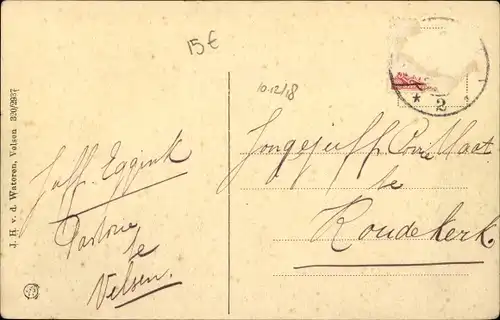 15€
10.12/18
J. H. v. d. Wateren, Velsen. 330/2937
Juff. Eggink
Pastorie
te
Velsen.
Jongejuff. Corrie Maat
te
Koudekerk
* 2